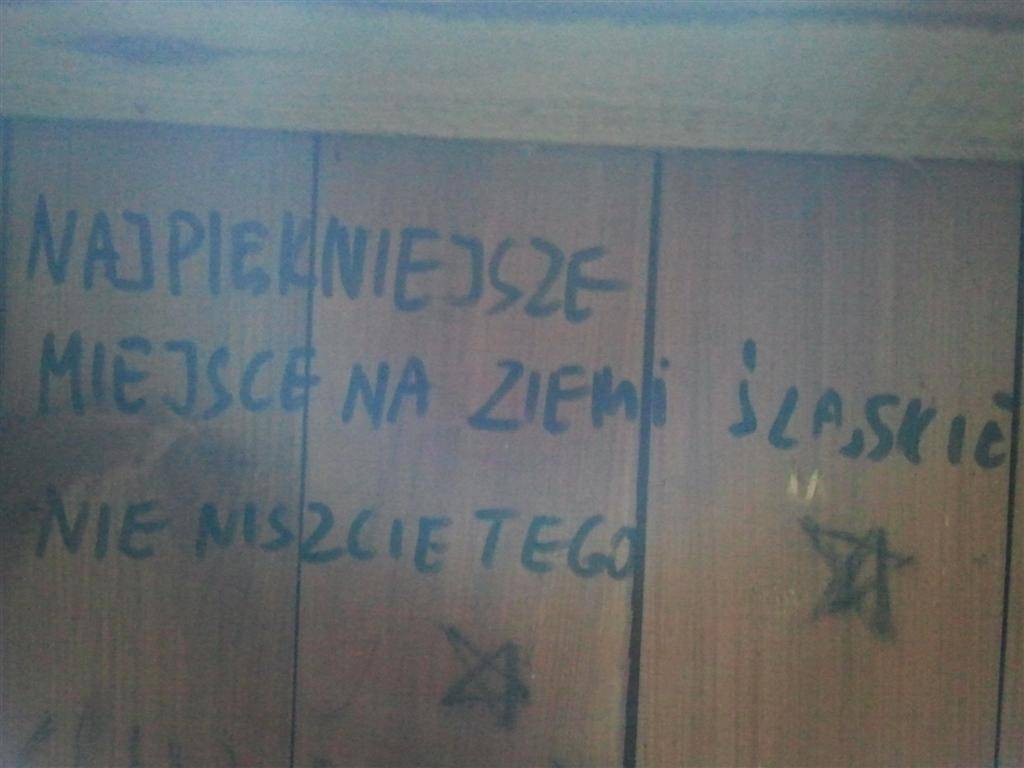 NAJPIĘKNIEJSZE
MIEJSCE NA ZIEMI ŚLĄSKIE
NIE NISZCIE TEGO